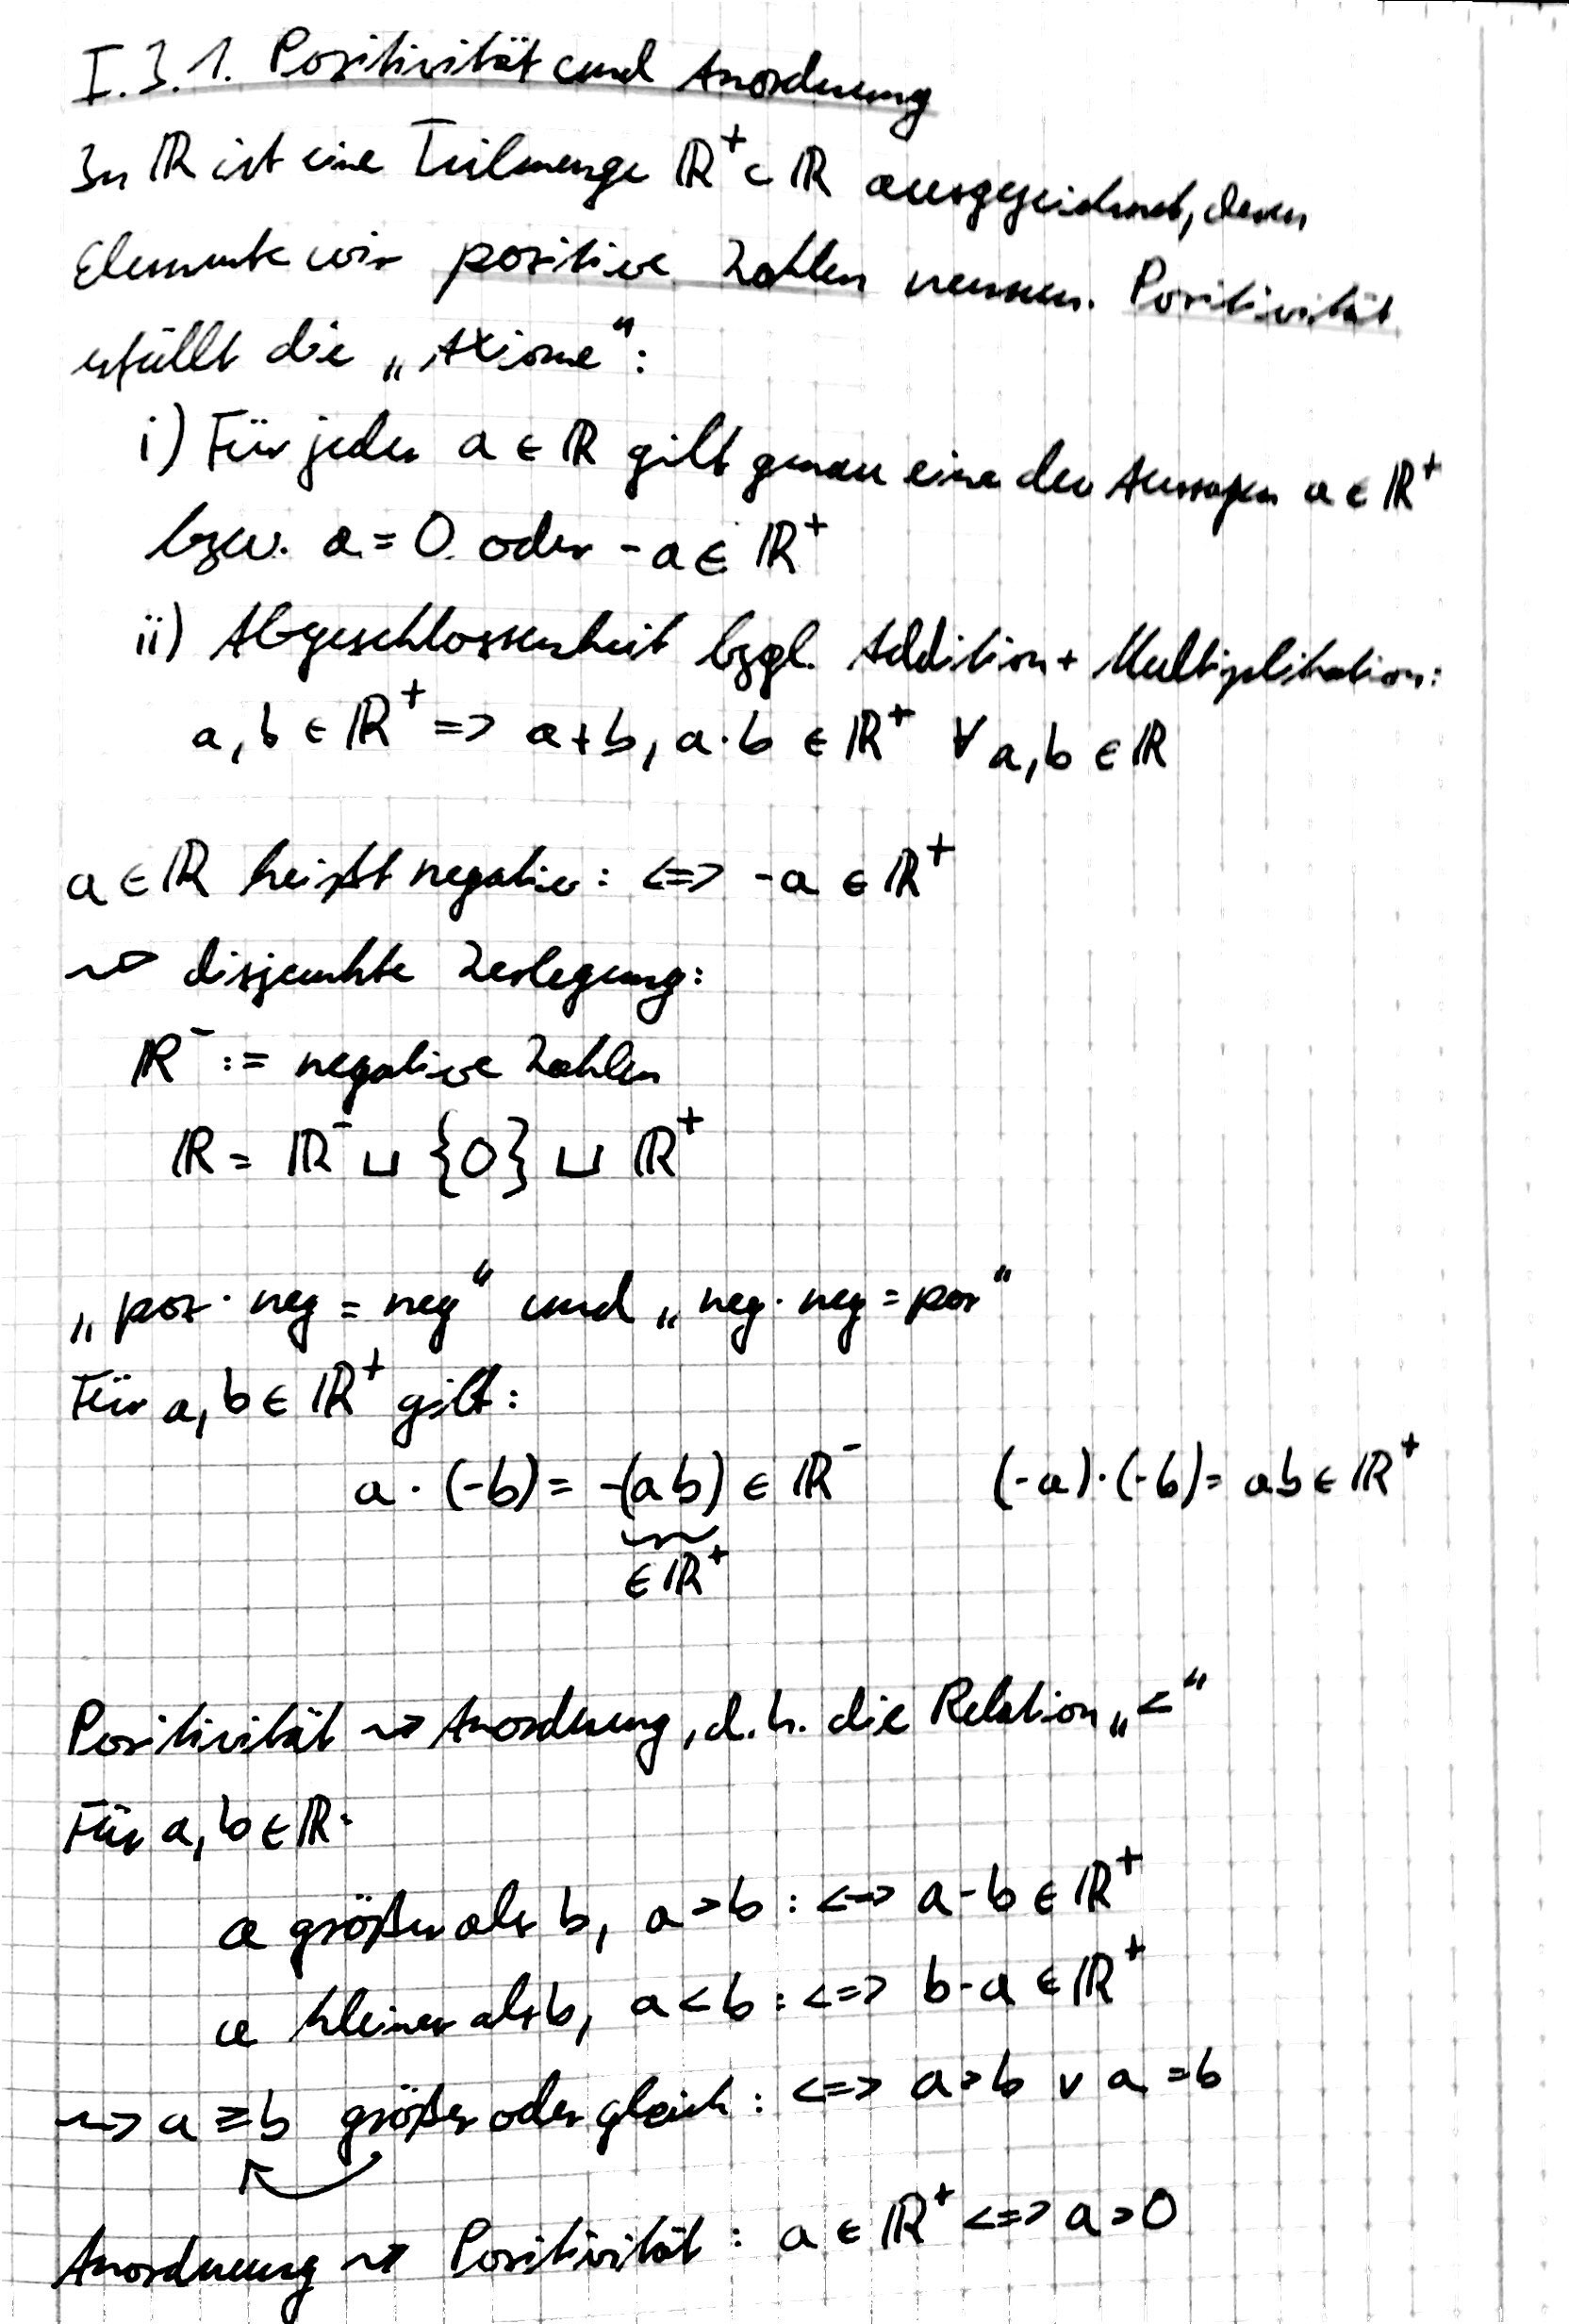 I.3.1. Positivität und Anordnung
In ℝ ist eine Teilmenge ℝ⁺ ⊂ ℝ ausgezeichnet, deren
Elemente wir positive Zahlen nennen. Positivität
erfüllt die „Axiome“:
i) Für jedes a ∈ ℝ gilt genau eine der Aussagen a ∈ ℝ⁺
bzw. a = 0 oder -a ∈ ℝ⁺
ii) Abgeschlossenheit bzgl. Addition + Multiplikation:
a, b ∈ ℝ⁺ => a+b, a·b ∈ ℝ⁺ ∀ a, b ∈ ℝ
a ∈ ℝ heißt negativ : <=> -a ∈ ℝ⁺
⇝ disjunkte Zerlegung:
ℝ⁻ := negative Zahlen
ℝ = ℝ⁻ ⊔ {0} ⊔ ℝ⁺
„pos · neg = neg“ und „neg · neg = pos“
Für a, b ∈ ℝ⁺ gilt:
a · (-b) = -(ab) ∈ ℝ⁻ (-a)·(-b) = ab ∈ ℝ⁺
∈ ℝ⁺
Positivität ⇝ Anordnung, d.h. die Relation „<“
Für a, b ∈ ℝ:
a größer als b, a > b : <=> a - b ∈ ℝ⁺
a kleiner als b, a < b : <=> b - a ∈ ℝ⁺
⇝ a ≥ b größer oder gleich : <=> a > b ∨ a = b
Anordnung ⇝ Positivität : a ∈ ℝ⁺ <=> a > 0